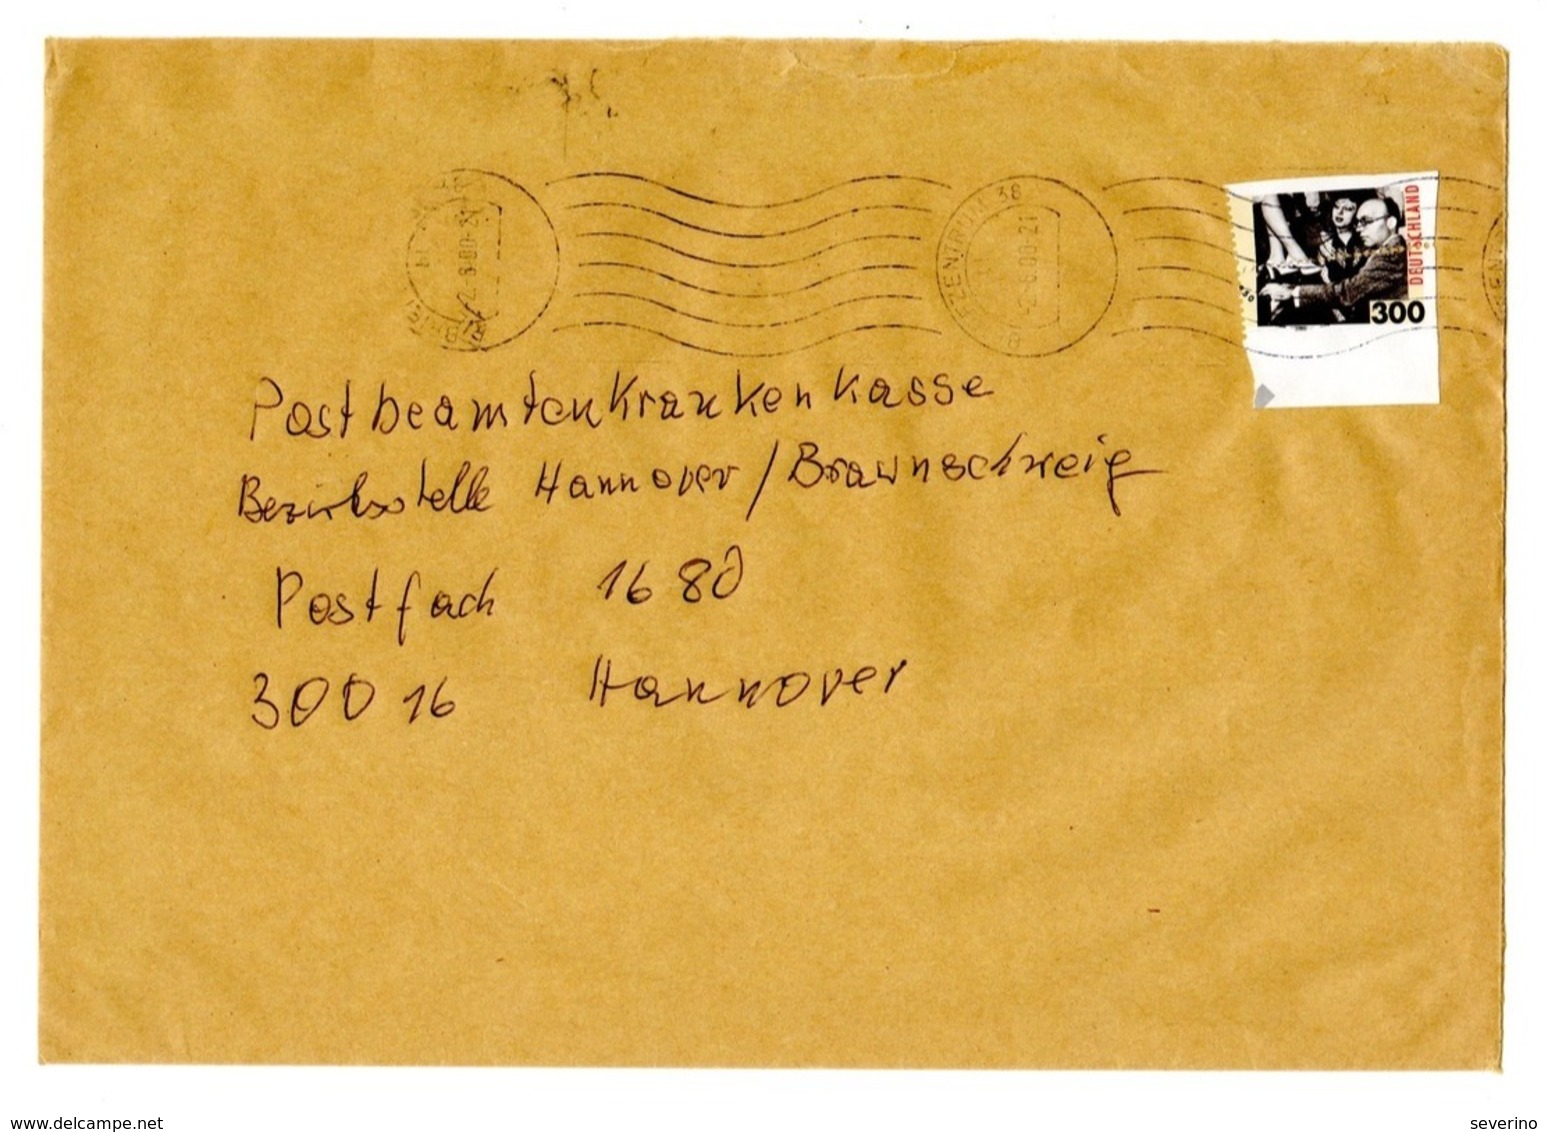 BRIEFZENTRUM 38
-2.6.00-21
DEUTSCHLAND
300
Postbeamtenkrankenkasse
Bezirksstelle Hannover/Braunschweig
Postfach 1680
30016 Hannover
www.delcampe.net
severino